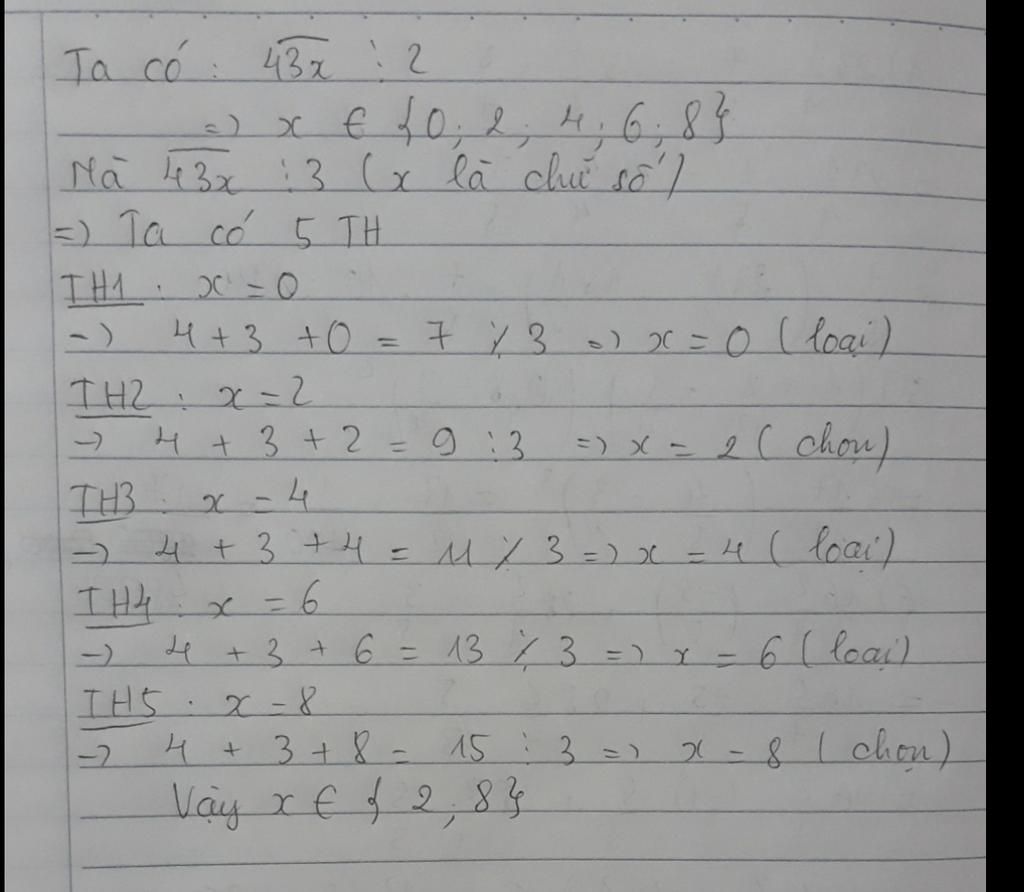 Ta có : \overline{43x} ⋮ 2
=> x ∈ {0; 2; 4; 6; 8}
Mà \overline{43x} ⋮ 3 (x là chữ số)
=> Ta có 5 TH
TH1 : x = 0
-> 4 + 3 + 0 = 7 ⋮̸ 3 => x = 0 (loại)
TH2 : x = 2
-> 4 + 3 + 2 = 9 ⋮ 3 => x = 2 (chọn)
TH3 : x = 4
-> 4 + 3 + 4 = 11 ⋮̸ 3 => x = 4 (loại)
TH4 : x = 6
-> 4 + 3 + 6 = 13 ⋮̸ 3 => x = 6 (loại)
TH5 : x = 8
-> 4 + 3 + 8 = 15 ⋮ 3 => x = 8 (chọn)
Vậy x ∈ {2, 8}